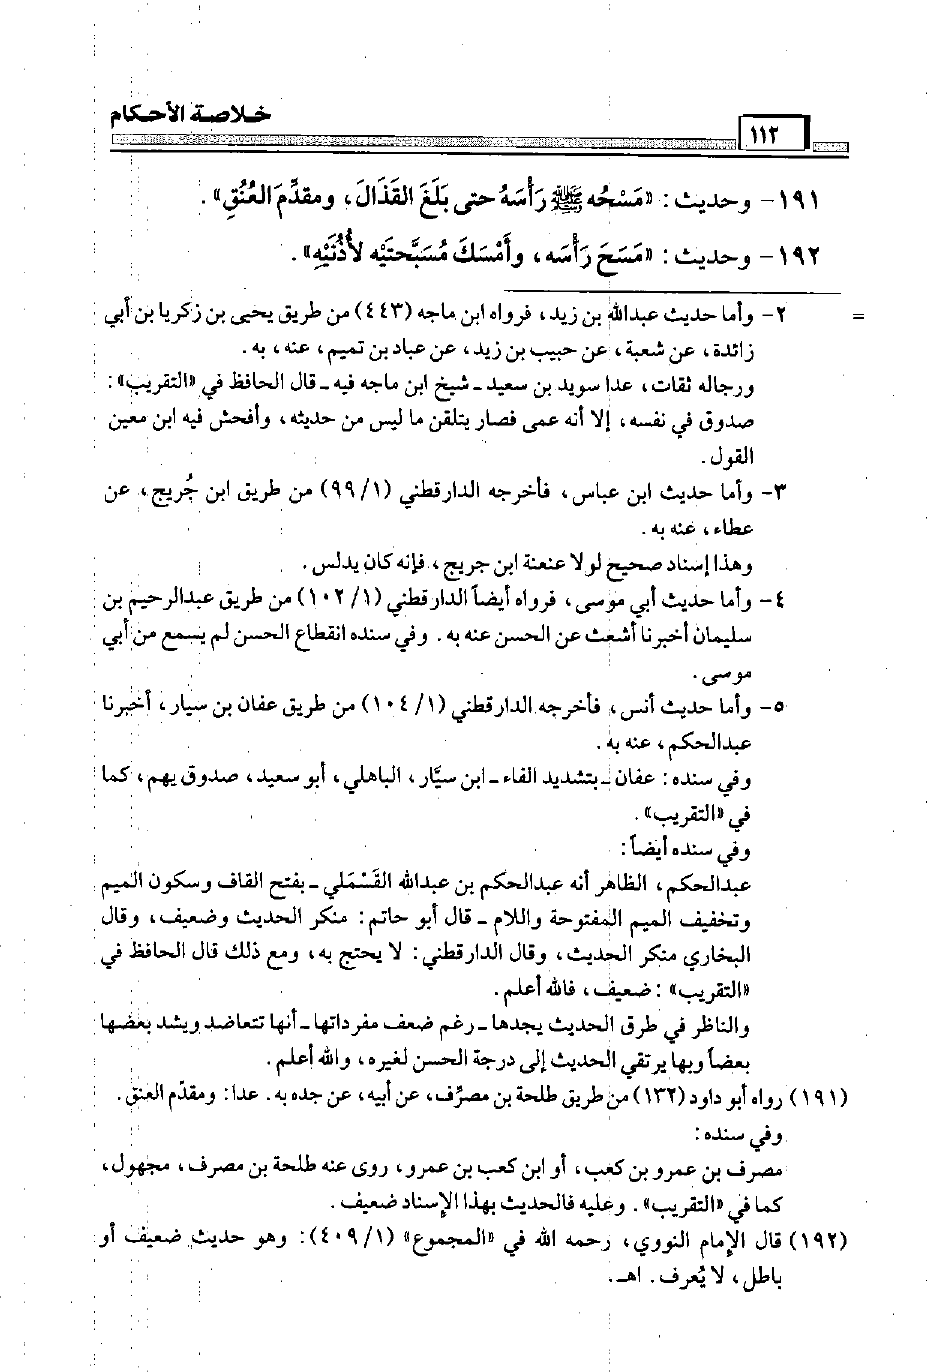 خلاصة الأحكام
١١٢
١٩١- وحديث: «مَسْحُه ﷺ رَأْسَهُ حتى بَلَغَ القَذَالَ، ومقدَّمِ العُنُقِ».
١٩٢- وحديث: «مَسَحَ رَأْسَه، وأَمْسَكَ مُسَبَّحتَيْه لأُذُنَيْهِ».
= ٢- وأما حديث عبدالله بن زيد، فرواه ابن ماجه (٤٤٣) من طريق يحيى بن زكريا بن أبي
زائدة، عن شعبة، عن حبيب بن زيد، عن عباد بن تميم، عنه، به.
ورجاله ثقات، عدا سويد بن سعيد ـ شيخ ابن ماجه فيه ـ قال الحافظ في «التقريب»:
صدوق في نفسه، إلا أنه عمى فصار يتلقن ما ليس من حديثه، وأفحش فيه ابن معين
القول.
٣- وأما حديث ابن عباس، فأخرجه الدارقطني (١/ ٩٩) من طريق ابن جُريج، عن
عطاء، عنه به.
وهذا إسناد صحيح لولا عنعنة ابن جريج، فإنه كان يدلس.
٤- وأما حديث أبي موسى، فرواه أيضاً الدارقطني (١/ ١٠٢) من طريق عبدالرحيم بن
سليمان أخبرنا أشعث عن الحسن عنه به. وفي سنده انقطاع الحسن لم يسمع من أبي
موسى.
٥- وأما حديث أنس، فأخرجه الدارقطني (١/ ١٠٤) من طريق عفان بن سيار، أخبرنا
عبدالحكم، عنه به.
وفي سنده: عفان ـ بتشديد الفاء ـ ابن سيَّار، الباهلي، أبو سعيد، صدوق يهم، كما
في «التقريب».
وفي سنده أيضاً:
عبدالحكم، الظاهر أنه عبدالحكم بن عبدالله القَسْمَلي ـ بفتح القاف وسكون الميم
وتخفيف الميم المفتوحة واللام ـ قال أبو حاتم: منكر الحديث وضعيف، وقال
البخاري منكر الحديث، وقال الدارقطني: لا يحتج به، ومع ذلك قال الحافظ في
«التقريب»: ضعيف، فالله أعلم.
والناظر في طرق الحديث يجدها ـ رغم ضعف مفرداتها ـ أنها تتعاضد ويشد بعضها
بعضاً وبها يرتقي الحديث إلى درجة الحسن لغيره، والله أعلم.
(١٩١) رواه أبو داود (١٣٢) من طريق طلحة بن مصرِّف، عن أبيه، عن جده به. عدا: ومقدّم العنق.
وفي سنده:
مصرف بن عمرو بن كعب، أو ابن كعب بن عمرو، روى عنه طلحة بن مصرف، مجهول،
كما في «التقريب». وعليه فالحديث بهذا الإسناد ضعيف.
(١٩٢) قال الإمام النووي، رحمه الله في «المجموع» (١/ ٤٠٩): وهو حديث ضعيف أو
باطل، لا يُعرف. اهـ.